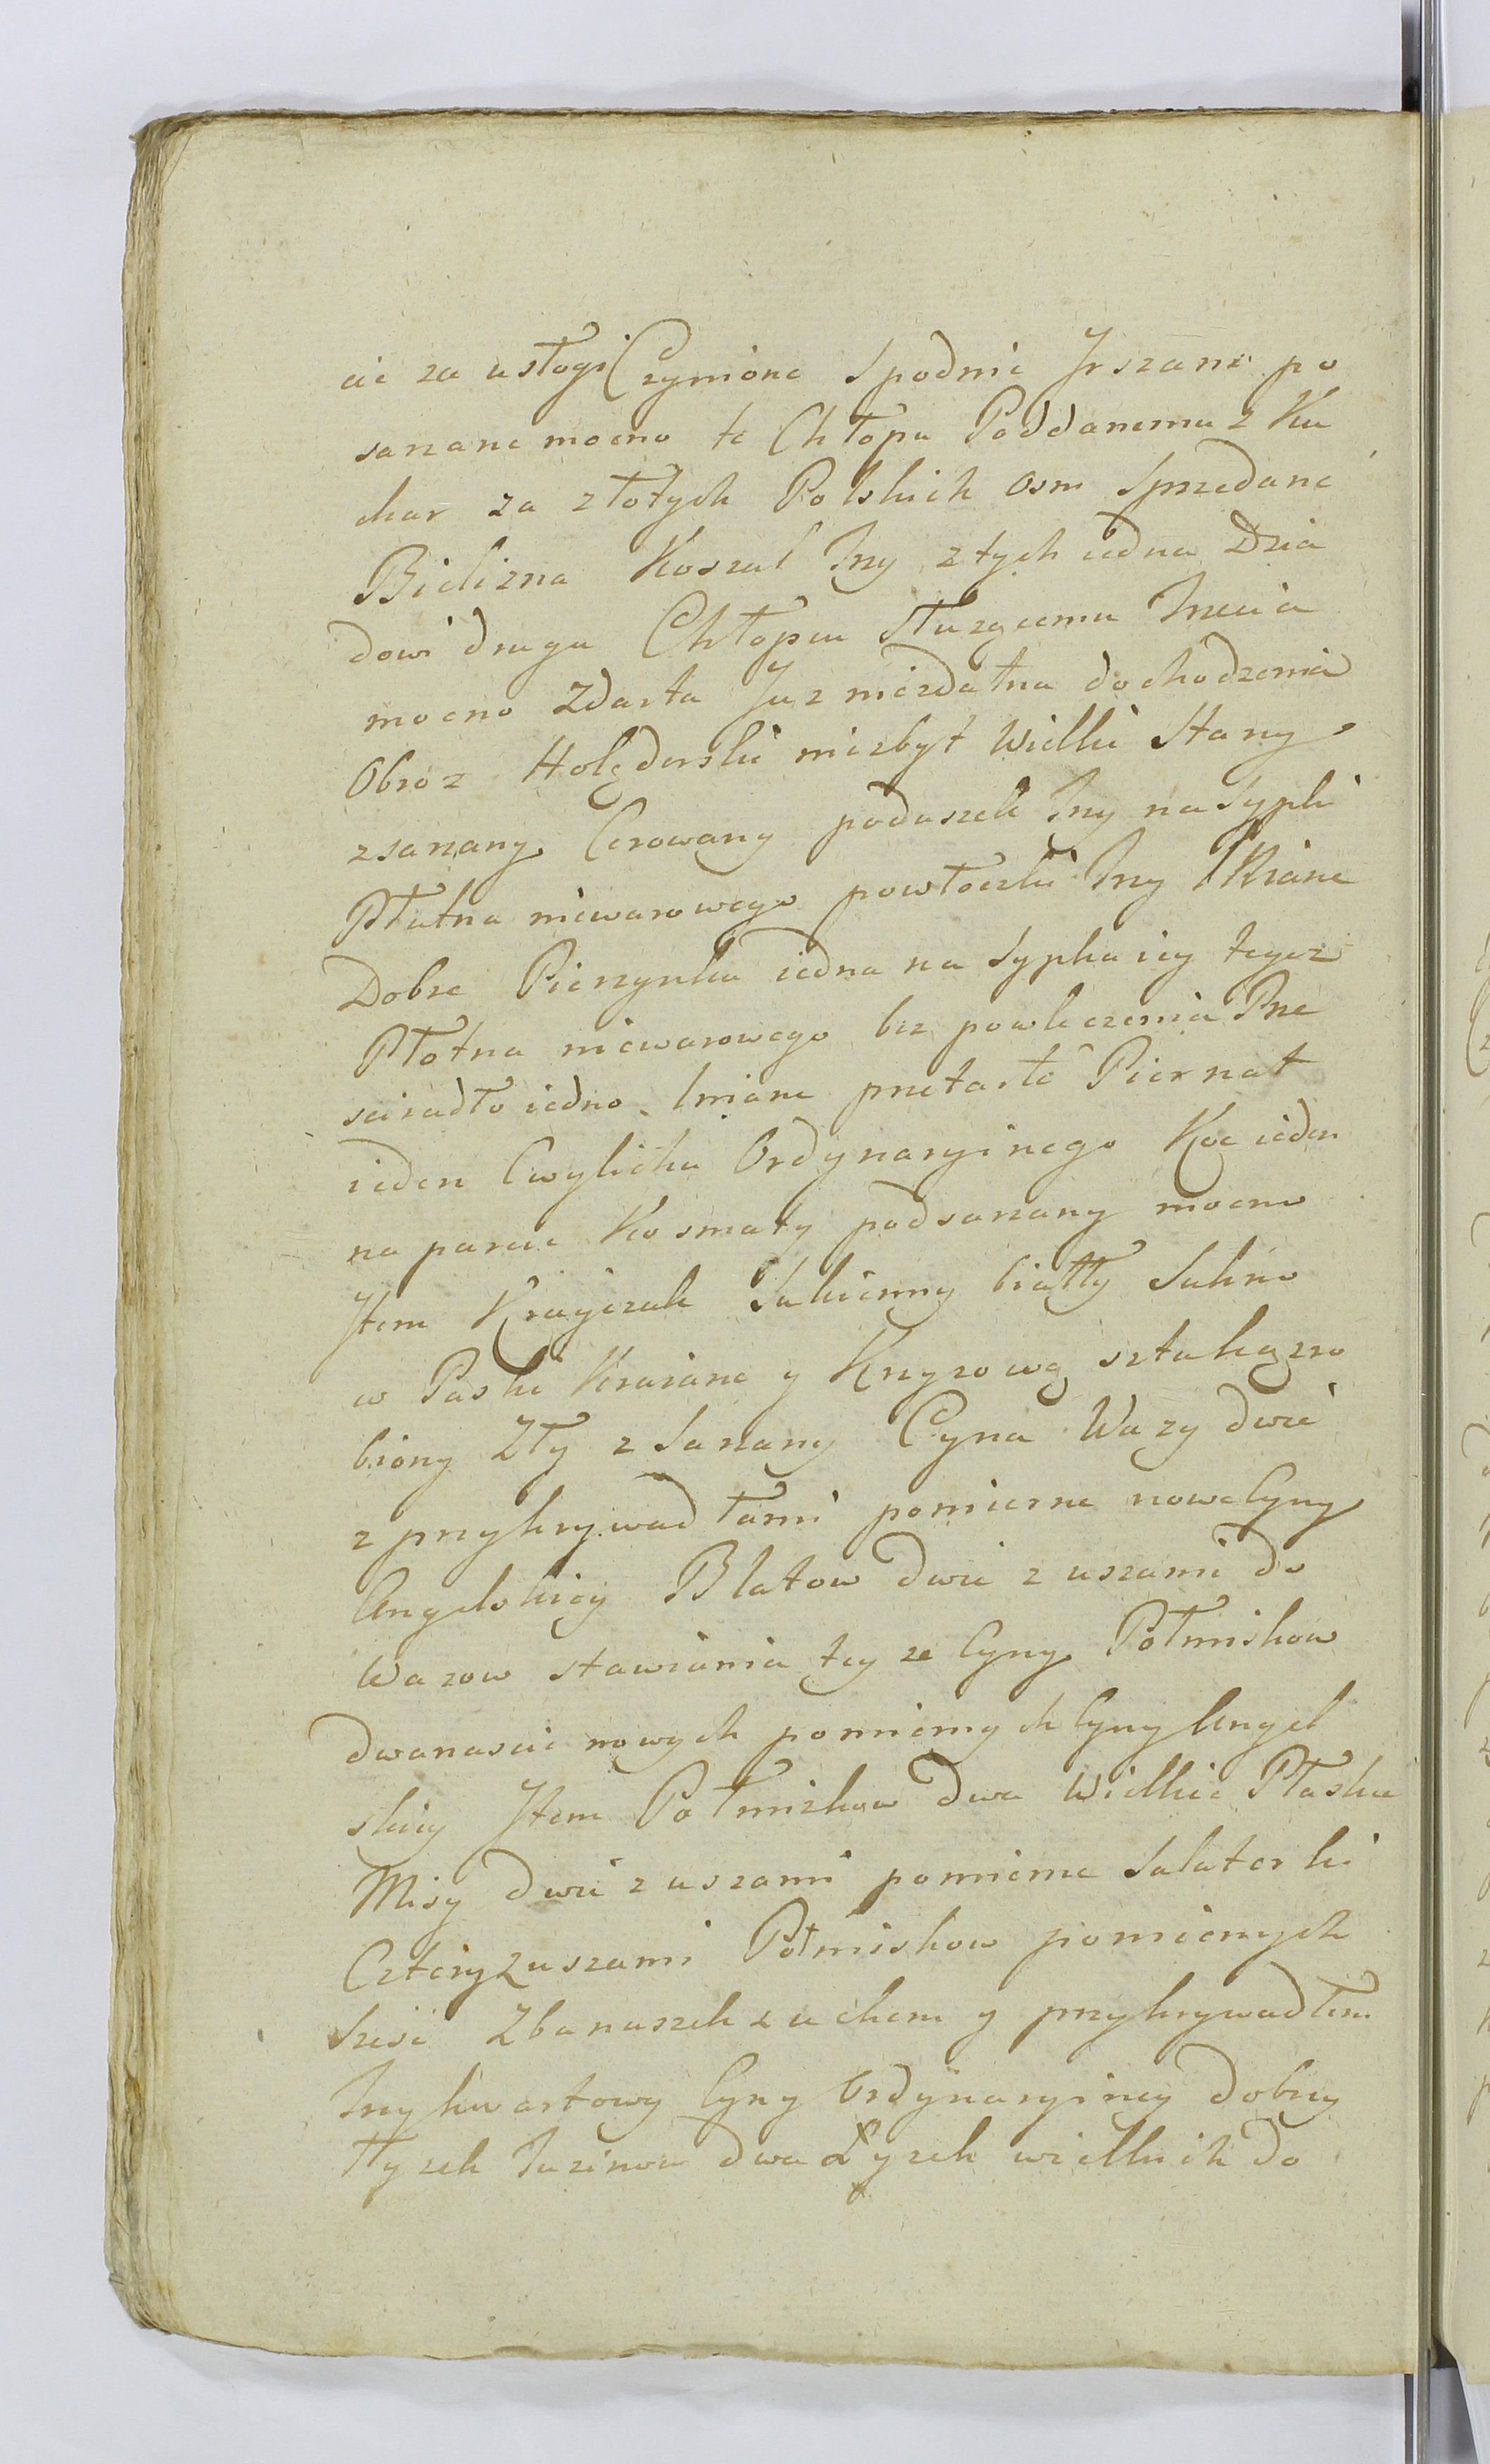 cie za usłogi Czynione Spodnie Jrszane po
sarzane mocno te Chłopu Poddanemu z Ku
char za złotych Polskich osm Sprzedane
Bielizna Koszul Trzy z tych iedna Dzia
dowi druga Chłopcu Słuzącemu Trzecia
mocno Zdarta Juz niezdatna do chodzenia
Obroz Holęderski niezbyt Wielki Stary
zsarzany Cerowany poduszek Trzy na Sypki
Płutna niewarowego powłoczki Trzy lniane
Dobre Pierzynka iedna na Sypka iey tegoz
Płotna niewarowego bez powleczenia Prze
scieradło iedno lniane przetarte Piernat
ieden Cwylichu Ordynaryinego Koc ieden
na parcie Kosmaty podsarzany mocno
Jtem Krajczak Sukienny biały Sukno
w Paski Kraiane y Krzyzową sztuką zro
biony Zły zsarzany Cyna Wazy dwie
z przykrywadłami pomierne nowe Cyny
Angelskiey Blatow dwie z uszami do
Wazow stawiania teyze Cyny Połmiskow
dwanascie nowych pomiernych Cyny Angel
skiey Jtem Połmiskow dwa Wielkie Płaskie
Misy dwie z uszami pomierne Salaterki
Cztery z uszami Połmiskow pomiernych
Szesc Zbanuszek z uchem y przykrywadłem
Trzykwartowy Cyny Ordynaryiney dobrey
Łyzek Tuzinow dwa Łyzek wielkich do